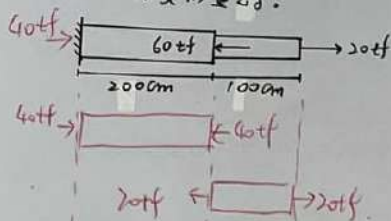 40tf
60tf
20tf
200cm
100cm
40tf
40tf
20tf
20tf